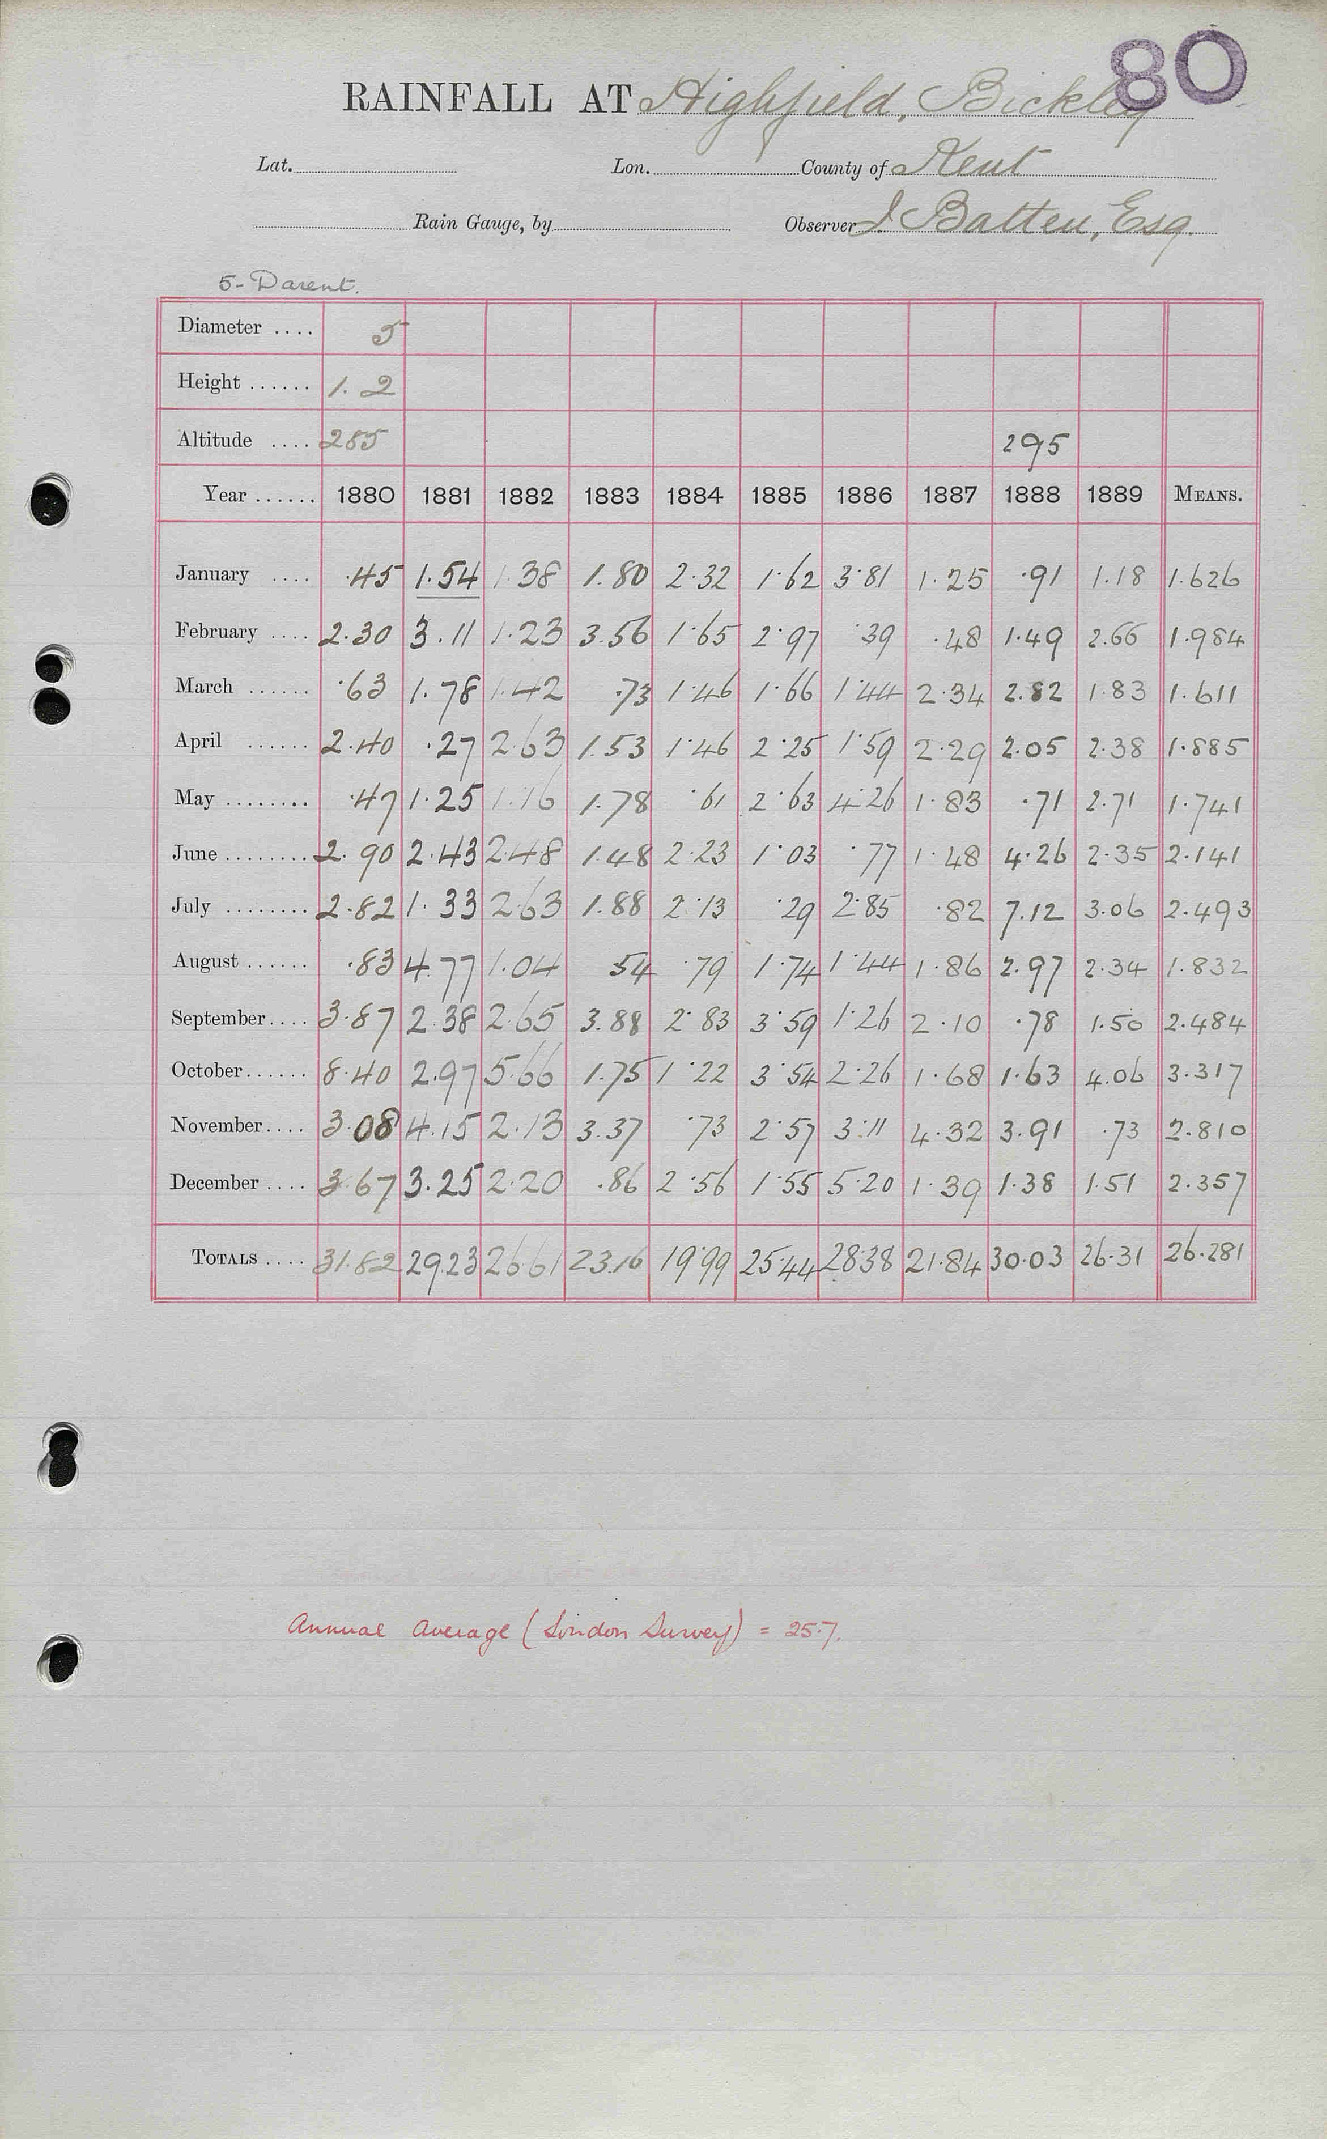 80
RAINFALL AT Highfield, Bickley
Lat. Lon. County of Kent
Rain Gauge, by Observer J Batten, Esq.
5- Darent.
Diameter .... 5
Height ...... 1. 2
Altitude .... 285 295
Year ...... 1880 1881 1882 1883 1884 1885 1886 1887 1888 1889 MEANS.
January .... ·45 1.54 1.38 1.80 2·32 1·62 3·81 1·25 ·91 1.18 1.626
February .... 2.30 3.11 1·23 3.56 1·65 2·97 ·39 ·48 1·49 2.66 1.984
March ...... ·63 1.78 1·42 .73 1·46 1·66 1·44 2·34 2.82 1·83 1.611
April ...... 2.40 ·27 2·63 1.53 1·46 2·25 1·59 2·29 2.05 2·38 1.885
May ........ ·47 1.25 1·16 1.78 ·61 2·63 4·26 1·83 ·71 2.71 1.741
June ........ 2.90 2.43 2·48 1.48 2·23 1·03 ·77 1·48 4·26 2·35 2·141
July ........ 2.82 1.33 2·63 1.88 2·13 ·29 2·85 ·82 7.12 3.06 2.493
August ...... ·83 4.77 1.04 54 ·79 1·74 1·44 1·86 2.97 2·34 1.832
September .... 3·87 2.38 2·65 3.88 2·83 3·59 1·26 2·10 ·78 1.50 2.484
October ...... 8·40 2.97 5·66 1.75 1·22 3·54 2·26 1·68 1·63 4.06 3·317
November .... 3·08 4.15 2·13 3.37 ·73 2·57 3·11 4·32 3.91 ·73 2.810
December .... 3·67 3.25 2·20 .86 2·56 1·55 5·20 1·39 1·38 1.51 2·357
TOTALS .... 31.82 29.23 26·61 23.16 19·99 25·44 28·38 21·84 30·03 26·31 26·281
Annual Average (London Survey) = 25·7.